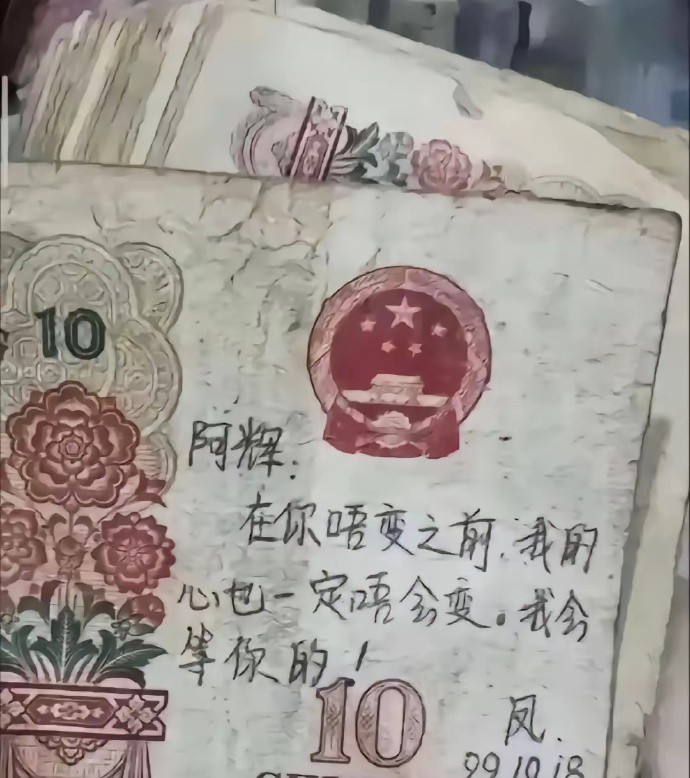 10
阿辉:
在你唔变之前,我的
心也一定唔会变。我会
等你的!
10
凤.
99.10.18